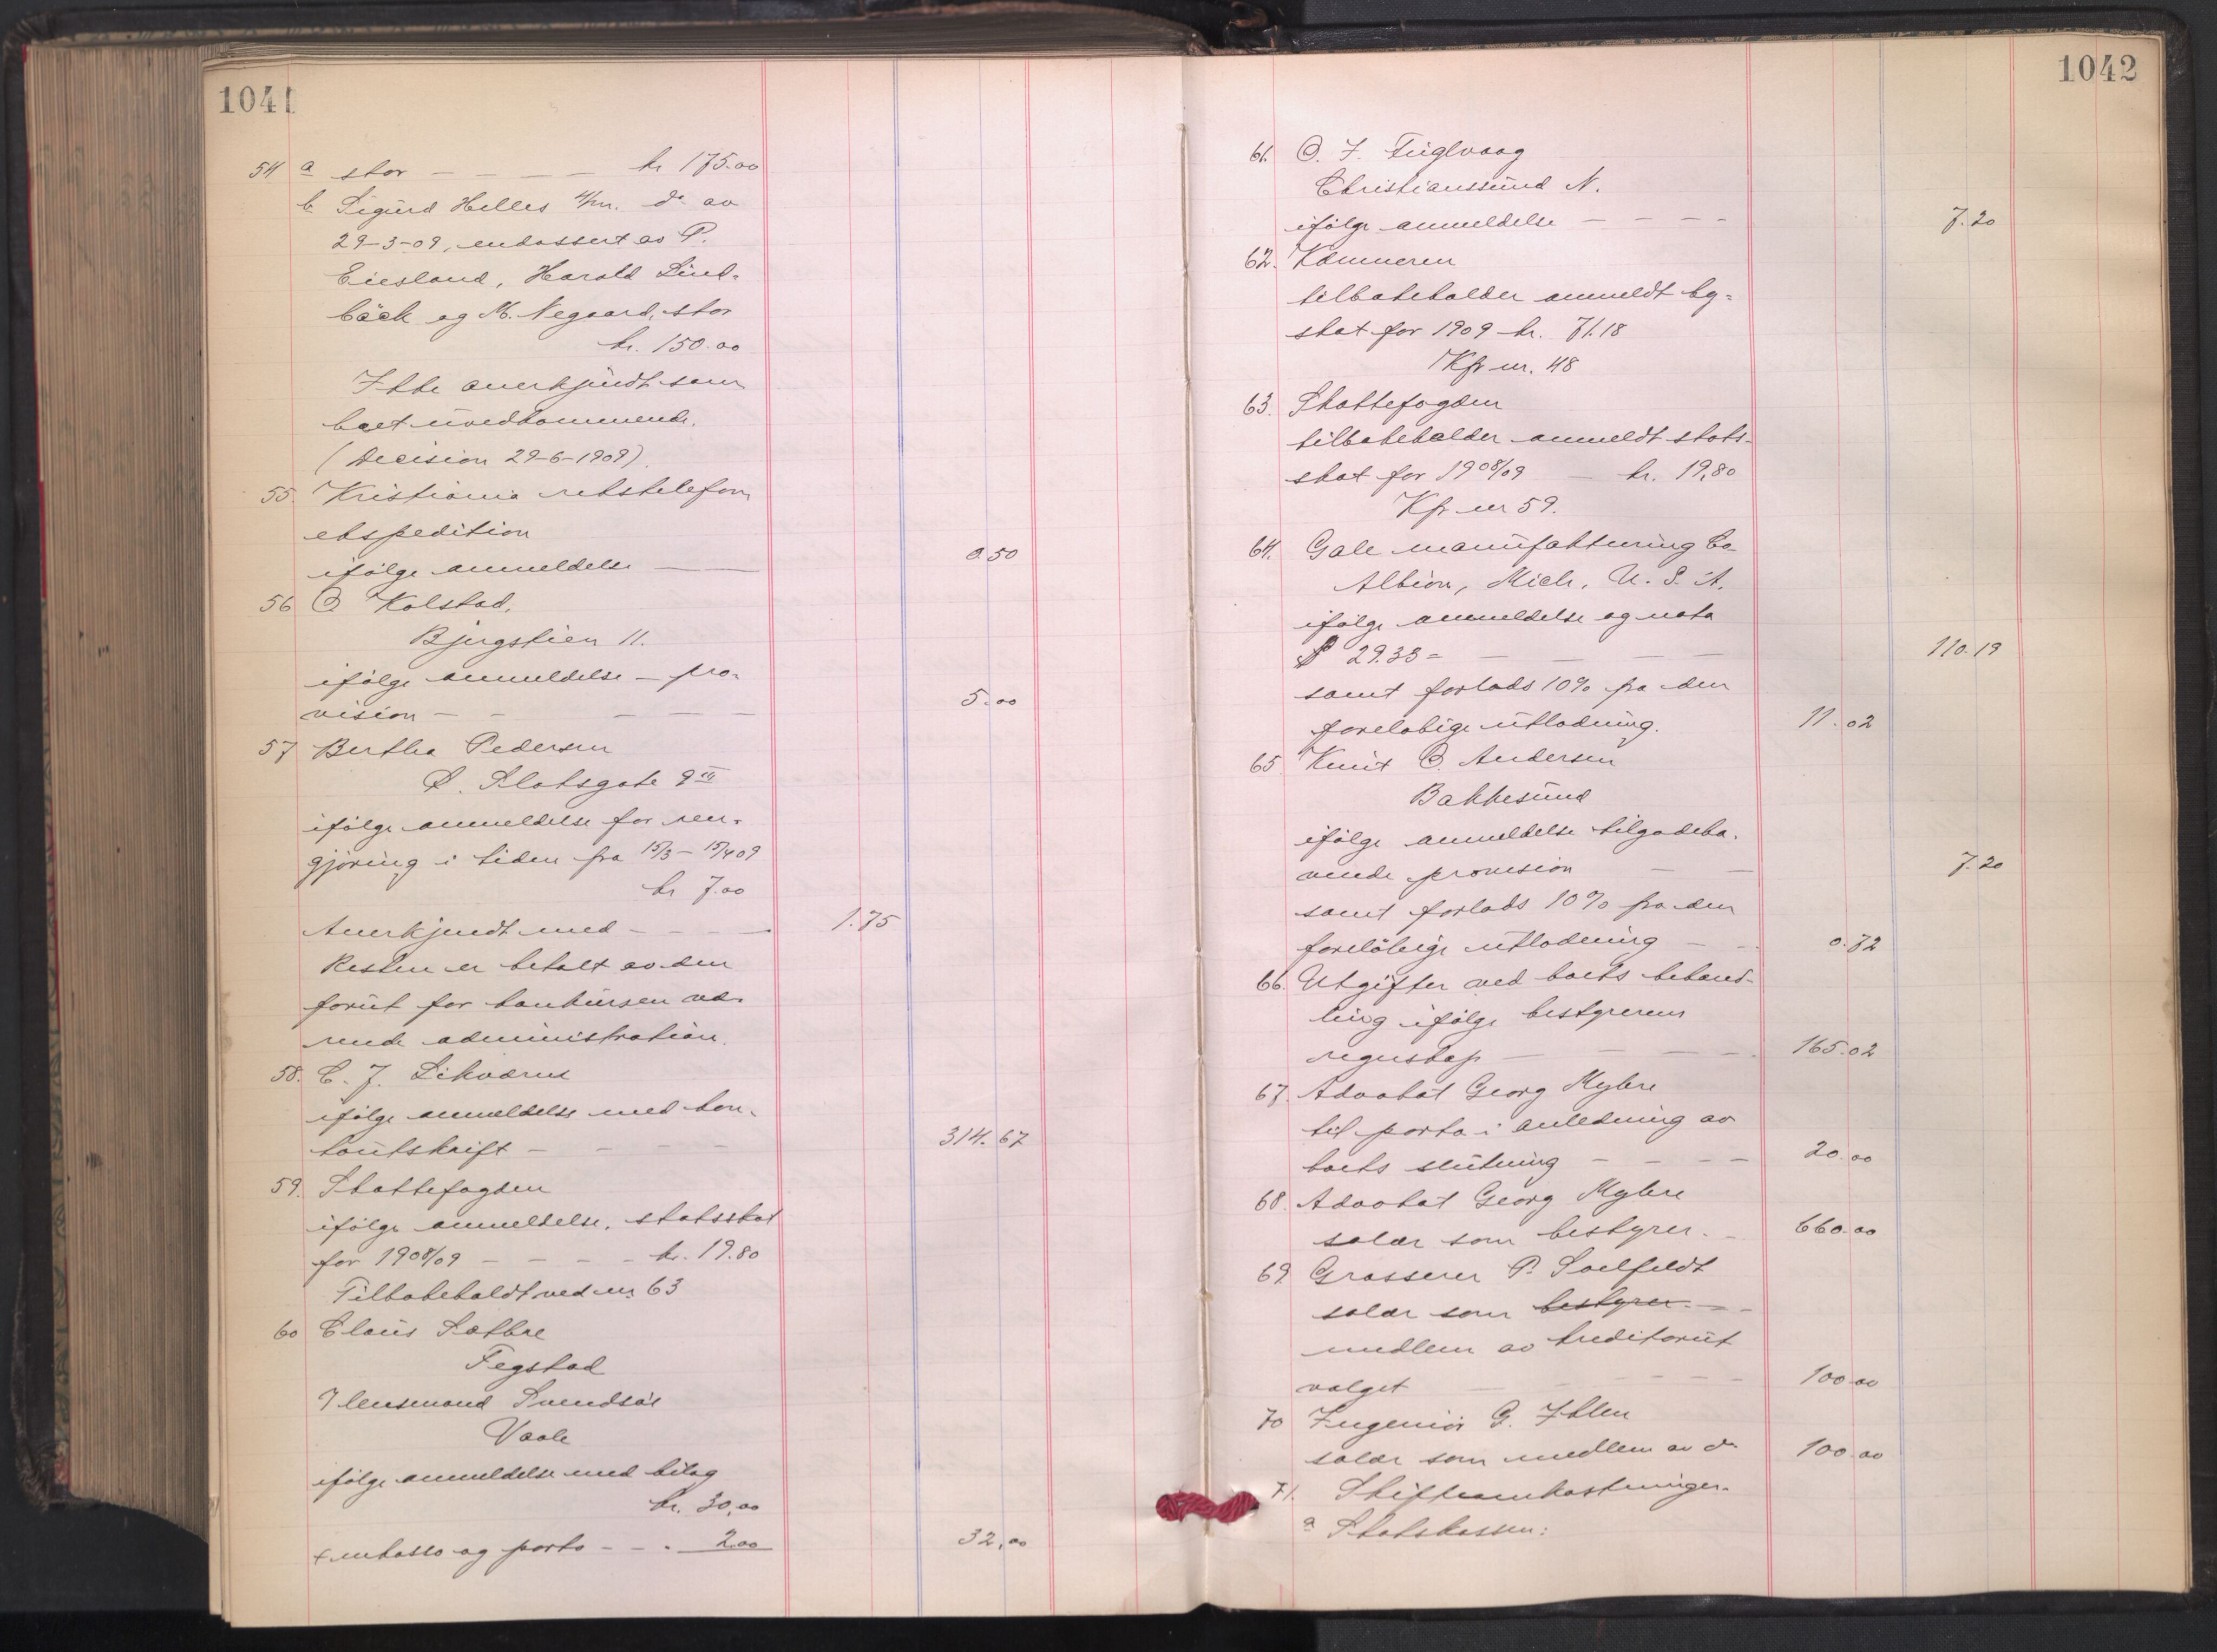 1041
54 a stor - - - - kr 175.00
b Sigurd Helles 4/m. do av
29-3-09, endossert av P.
Eiesland, Harald Lind-
bäck og M. Negaard, stor
kr. 150.00
Ikke anerkjendt som
boet uvedkommende.
(Decision 29-6-1909).
55. Kristiania rikstelefon
ekspedition
ifölge anmeldelse - - 0.50
56 O Kolstad,
Bjergstien 11.
ifölge anmeldelse - pro-
vision - - - - - 5.00
57 Bertha Pedersen
Ö. Slotsgate 9 III
ifölge anmeldelse for ren-
gjöring i tiden fra 15/3 - 15/4 09
kr 7.00
Anerkjendt med - - - 1.75
Resten er betalt av den
forut for konkursen væ-
rende administration.
58. C. J. Likværn
ifölge anmeldelse med kon-
toutskrift - - - - 314.67
59. Skattefogden
ifölge anmeldelse, statsskat
for 1908/09 - - - - kr. 19.80
Tilbakeholdt ved nr 63
60 Claus Satbre
Fegstad
Lensmand
Vaale
ifölge anmeldelse med bilag
kr. 30,00
+ inkasso og porto - - - 2.00 32,00
1042
61. O. F. Fuglvaag
Christianssund N.
ifölge anmeldelse - - - - 7.20
62. Kæmneren
tilbakeholder anmeldt by-
skat for 1909 kr. 71.18
Kfr nr. 48
63. Skattefogden
tilbakeholder anmeldt stats-
skat for 1908/09 - kr. 19,80
Kfr nr 59.
64. Gale manufakturing Co
Albion, Mich. U. S. A.
ifölge anmeldelse og nota
$ 29.33 = - - - - 110.19
samt forlods 10% fra den
forelobige utlodning. 11.02
65. Knut O. Andersen
Bakkesund
ifölge anmeldelse tilgodeha-
vende provision - - 7.20
samt forlods 10% fra den
forelöbige utlodning - - 0.72
66. Utgifter ved boets behand-
ling ifölge bestyrerens
regnskap - - - - 165.02
67. Advokat Georg Myhre
til porto i anledning av
boets slutning - - - - 20.00
68. Advokat Georg Myhre
salær som bestyrer. - 660.00
69. Grosserer P. Soelfeldt
salær som bestyrer - -
medlem av kreditorut
valget - - - - - 100.00
70 Ingeniör G. Ihlen
salær som medlem av do 100.00
71. Skifteomkostninger.
a Statskassen: